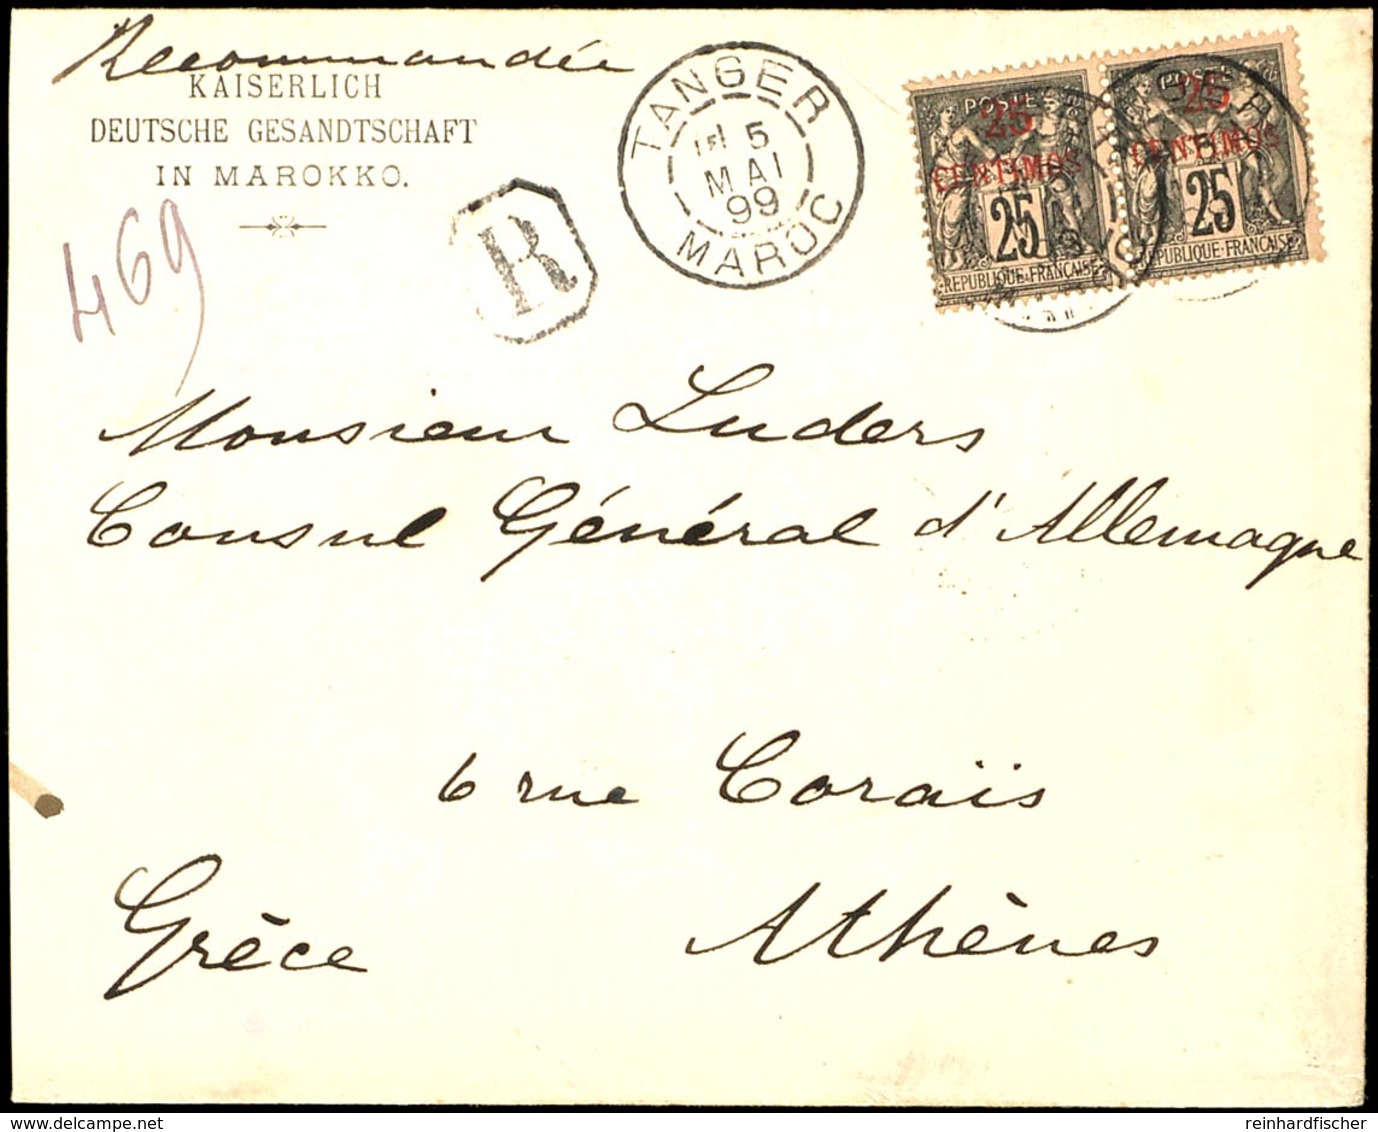 Recommandée
KAISERLICH
DEUTSCHE GESANDTSCHAFT
IN MAROKKO.
469
R
TANGER
5
MAI
99
MAROC
POSTE
25
CENTIMOS
25
REPUBLIQUE FRANÇAISE
POSTE
25
CENTIMOS
25
REPUBLIQUE FRANÇAISE
Monsieur Luders
Consul Général d'Allemagne
6 rue Coraïs
Grèce Athènes
reinhardfischer